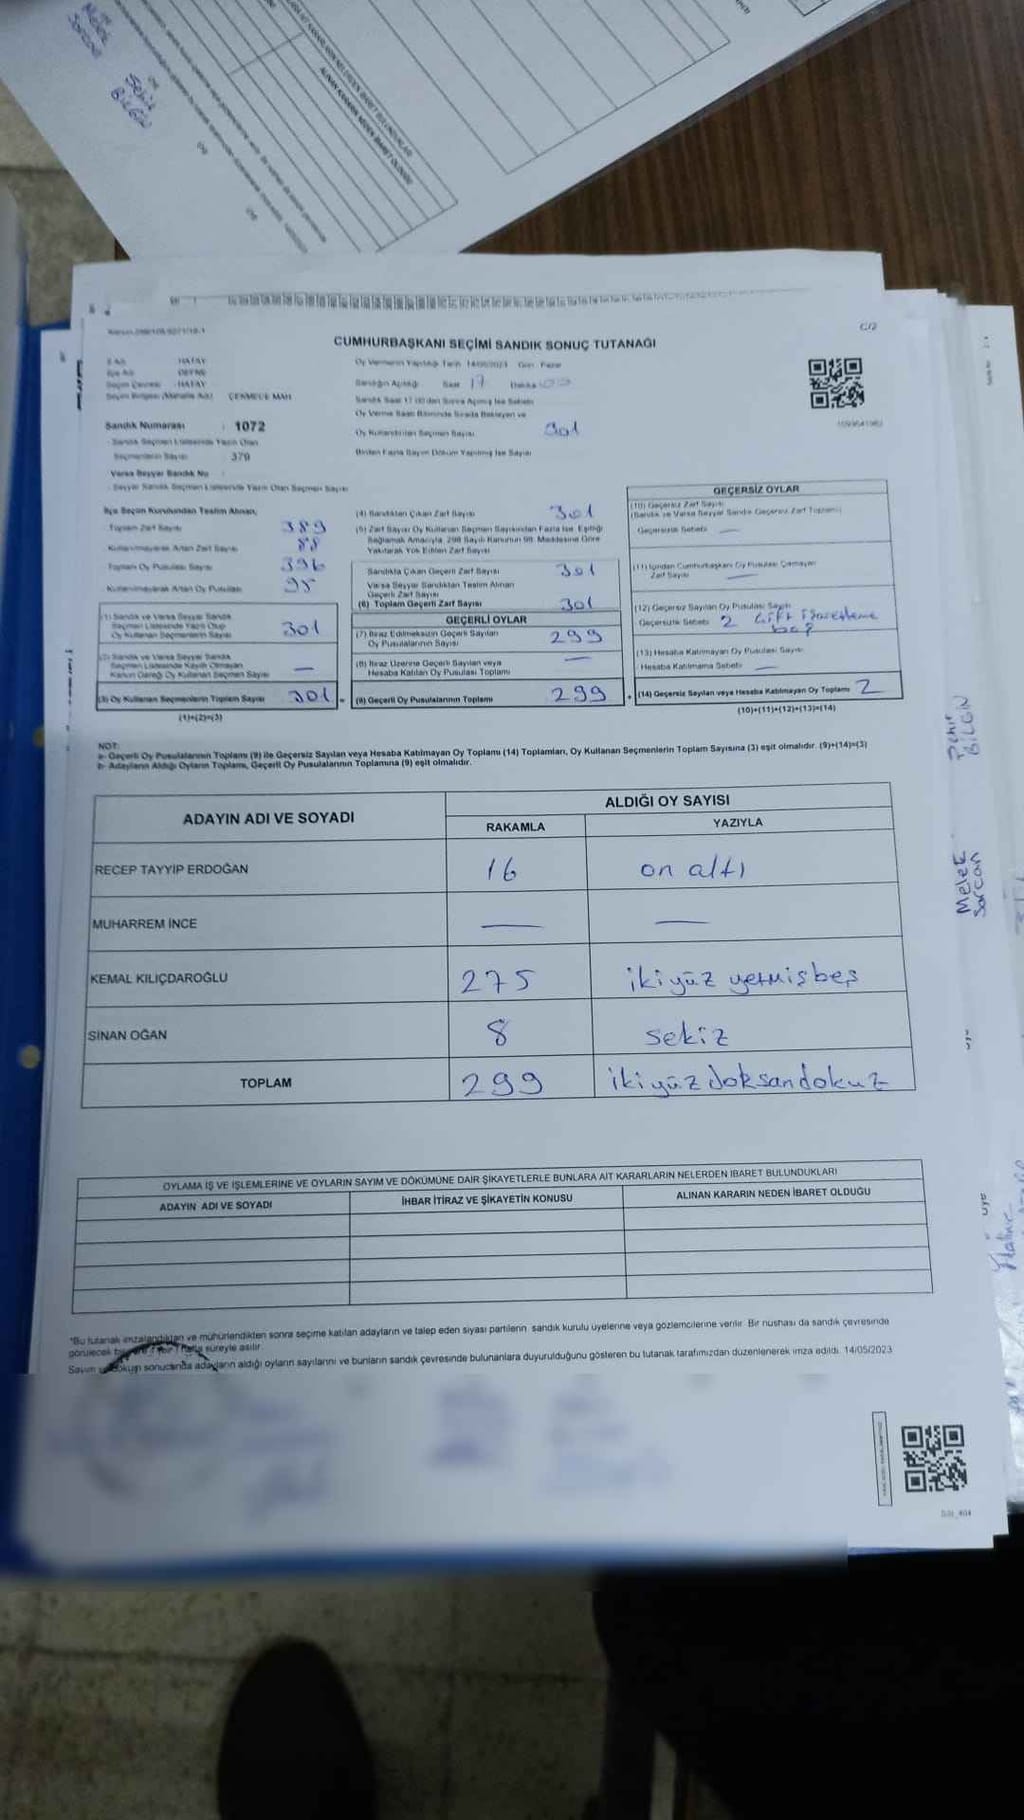 Melek
Sarcan
Şehir
BİLGİN
ALINAN KARARIN NEDEN İBARET OLDUĞU
C/2
CUMHURBAŞKANI SEÇİMİ SANDIK SONUÇ TUTANAĞI
İl Adı HATAY
İlçe Adı DEFNE
Seçim Çevresi HATAY
Seçim Bölgesi (Mahalle Adı) ÇEKMECE MAH.
Sandık Numarası : 1072
Sandık Seçmen Listesinde Yazılı Olan
Seçmenlerin Sayısı : 379
Varsa Seyyar Sandık No :
Seyyar Sandık Seçmen Listesinde Yazılı Olan Seçmen Sayısı
Oy Vermenin Yapıldığı Tarih 14/05/2023 Gün Pazar
Sandığın Açıldığı Saat 17 Dakika 00
Sandık Saat 17.00'den Sonra Açılmış İse Sebebi
Oy Verme Saati Bitiminde Sırada Bekleyen ve
Oy Kullandırılan Seçmen Sayısı 301
Birden Fazla Sayım Döküm Yapılmış İse Sayısı
İlçe Seçim Kurulundan Teslim Alınan;
Toplam Zarf Sayısı 389
Kullanılmayarak Artan Zarf Sayısı 88
Toplam Oy Pusulası Sayısı 396
Kullanılmayarak Artan Oy Pusulası 95
(1) Sandık ve Varsa Seyyar Sandık
Seçmen Listesinde Yazılı Olup
Oy Kullanan Seçmenlerin Sayısı 301
(2) Sandık ve Varsa Seyyar Sandık
Seçmen Listesinde Kayıtlı Olmayan
Kanun Gereği Oy Kullanan Seçmen Sayısı —
(3) Oy Kullanan Seçmenlerin Toplam Sayısı 301
(1)+(2)=(3)
(4) Sandıktan Çıkan Zarf Sayısı 301
(5) Zarf Sayısı Oy Kullanan Seçmen Sayısından Fazla İse, Eşitliği
Sağlamak Amacıyla, 298 Sayılı Kanunun 98. Maddesine Göre
Yakılarak Yok Edilen Zarf Sayısı
Sandıkta Çıkan Geçerli Zarf Sayısı 301
Varsa Seyyar Sandıktan Teslim Alınan
Geçerli Zarf Sayısı
(6) Toplam Geçerli Zarf Sayısı 301
GEÇERLİ OYLAR
(7) İtiraz Edilmeksizin Geçerli Sayılan
Oy Pusulalarının Sayısı 299
(8) İtiraz Üzerine Geçerli Sayılan veya
Hesaba Katılan Oy Pusulası Toplamı —
= (9) Geçerli Oy Pusulalarının Toplamı 299
GEÇERSİZ OYLAR
(10) Geçersiz Zarf Sayısı
(Sandık ve Varsa Seyyar Sandık Geçersiz Zarf Toplamı)
Geçersizlik Sebebi —
(11) İçinden Cumhurbaşkanı Oy Pusulası Çıkmayan
Zarf Sayısı —
(12) Geçersiz Sayılan Oy Pusulası Sayısı
Geçersizlik Sebebi 2 Çift işaretleme
(13) Hesaba Katılmayan Oy Pusulası Sayısı
Hesaba Katılmama Sebebi —
+ (14) Geçersiz Sayılan veya Hesaba Katılmayan Oy Toplamı 2
(10)+(11)+(12)+(13)=(14)
NOT:
a- Geçerli Oy Pusulalarının Toplamı (9) ile Geçersiz Sayılan veya Hesaba Katılmayan Oy Toplamı (14) Toplamları, Oy Kullanan Seçmenlerin Toplam Sayısına (3) eşit olmalıdır. (9)+(14)=(3)
b- Adayların Aldığı Oyların Toplamı, Geçerli Oy Pusulalarının Toplamına (9) eşit olmalıdır.
ADAYIN ADI VE SOYADI
ALDIĞI OY SAYISI
RAKAMLA YAZIYLA
RECEP TAYYİP ERDOĞAN 16 on altı
MUHARREM İNCE — —
KEMAL KILIÇDAROĞLU 275 iki yüz yetmişbeş
SİNAN OĞAN 8 sekiz
TOPLAM 299 iki yüz doksandokuz
OYLAMA İŞ VE İŞLEMLERİNE VE OYLARIN SAYIM VE DÖKÜMÜNE DAİR ŞİKAYETLERLE BUNLARA AİT KARARLARIN NELERDEN İBARET BULUNDUKLARI
ADAYIN ADI VE SOYADI İHBAR İTİRAZ VE ŞİKAYETİN KONUSU ALINAN KARARIN NEDEN İBARET OLDUĞU
*Bu tutanak imzalandıktan ve mühürlendikten sonra seçime katılan adayların ve talep eden siyasi partilerin sandık kurulu üyelerine veya gözlemcilerine verilir. Bir nüshası da sandık çevresinde
görülecek bir yere 1 (bir) hafta süreyle asılır.
Sayım ve döküm sonucunda adayların aldığı oyların sayılarını ve bunların sandık çevresinde bulunanlara duyurulduğunu gösteren bu tutanak tarafımızdan düzenlenerek imza edildi. 14/05/2023
Şehir
BİLGİN
Melek
Sarcan
Üye
Üye